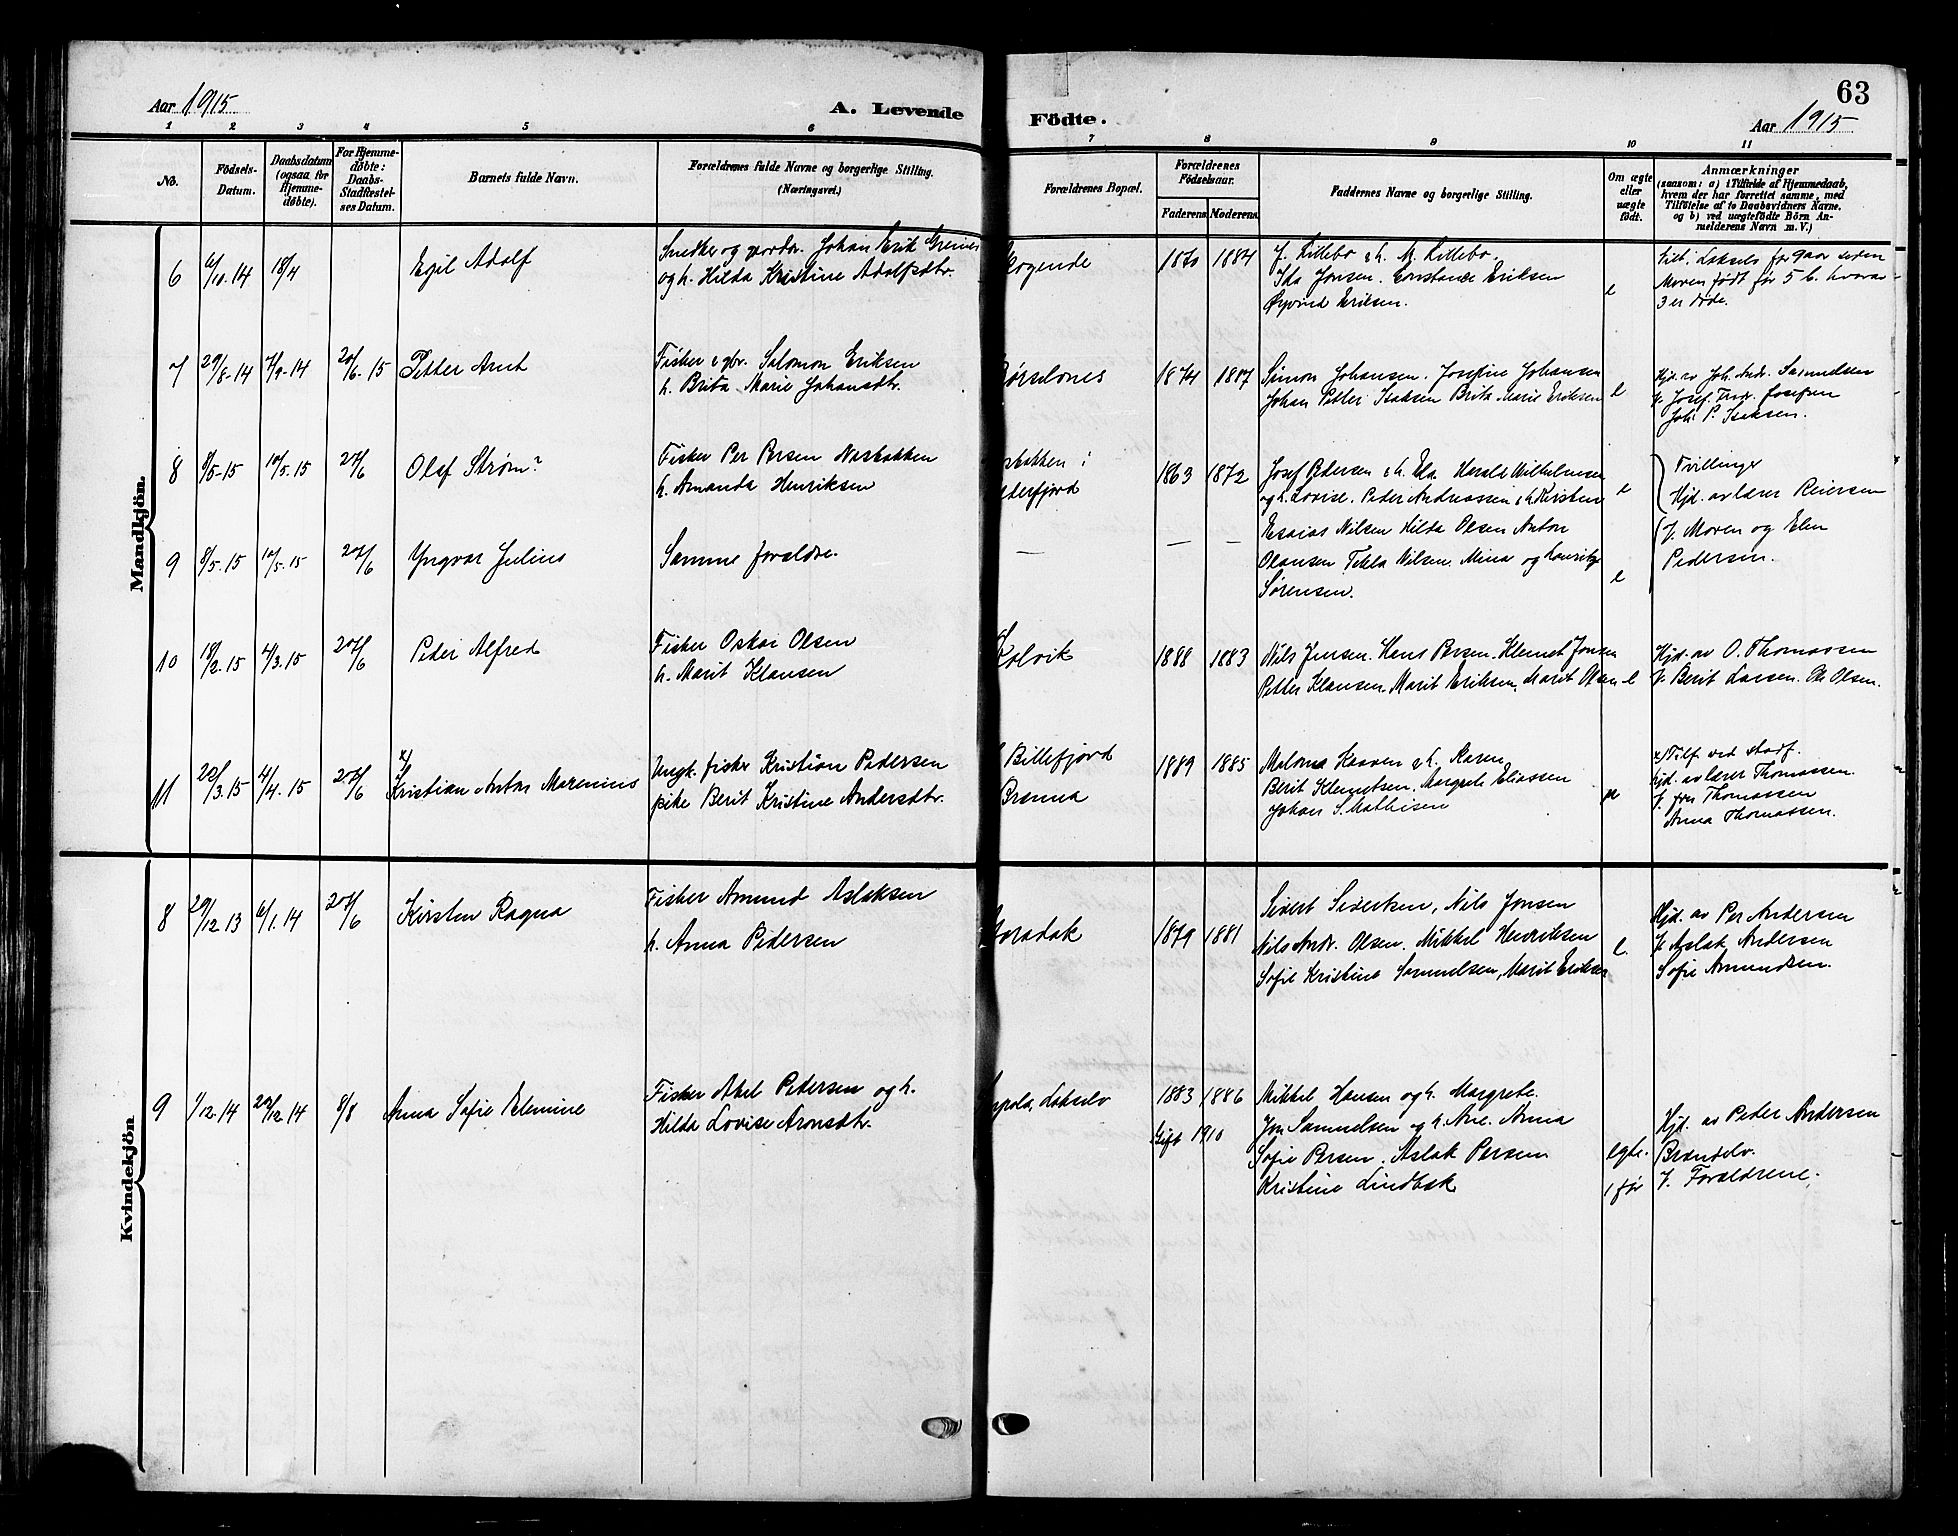 Aar 1915
A. Levende
Födte.
63
Aar 1915
1 2 3 4 5 6 7 8 9 10 11
No.
Födsels-
Datum.
Daabsdatum
(ogsaa for
Hjemme-
døbte).
For Hjemme-
døbte:
Daabs-
Stadfæstel-
ses Datum.
Barnets fulde Navn.
Forældrenes fulde Navne og borgerlige Stilling.
(Næringsvei.)
Forældrenes Bopæl.
Forældrenes
Födselsaar.
Faderens
Moderens
Faddernes Navne og borgerlige Stilling.
Om ægte
eller
uægte
födt.
Anmærkninger
(saasom: a) i Tilfælde af Hjemmedaab,
hvem der har forrettet samme, med
Tilföielse af to Daabsvidners Navne,
og b) ved uægtefödte Börn An-
melderens Navn m. V.)
Mandkjön.
6 6/10. 14 18/4 Egil Adolf
Snedker og gaardbr. Johan Erik
og h. Hilda Kristine Adolfsdtr.
1884
J. Lillebo & h. M. Lillebo.
Ida Jensen. Constance Eriksen
Øyvind Eriksen.
e
Moren født før 5 b. hvorav
3 er døde.
7 29/8. 14 7/9. 14 20/6. 15 Petter Arnt
Fisker & gbr. Salomon Eriksen
h. Brita Marie Johansdtr.
Børselvnes 1874 1887
Simon Johansen. Josefine Johansen
Johan Petter Isaksen Brita Marie Eriksen
e
Hjd. av Joh. Andr. Samuelsen
V. Josef Andr. Josefsen
Joh. P. Isaksen.
8 8/5. 15 10/5. 15 27/6 Olaf Strøm?
Fisker Per Persen Nesbakken
h. Amanda Henriksen
1863 1872
Josef Pedersen & h. Harald Wilhelmsen
og h. Lovise. Peder Andreassen & h. Kirsten
Esaias Nilsen Hilda Olsen Anton
e
Tvillinger
Hjd. av lærer Reiersen
V. Moren og Elen
Pedersen.
9 8/5. 15 10/5. 15 27/6 Yngvar Julius
Samme forældre.
— — —
Olausen Tekla Nilsen. Mina og
Sørensen.
e
10 18/2. 15 4/3. 15 27/6 Peder Alfred
Fisker Oskar Olsen
h. Marit Klausen
Kolvik 1888 1883
Nils Jensen. Hans Persen. Klemet Jonsen
Petter Klausen. Marit Eriksen. Marit Olsen
e
Hjd. av O. Thomassen
V. Berit Larsen. Olsen.
11 22/3. 15 4/4. 15 27/6 x) Kristian Anton Marenius
Ungk. fisker Kristian Pedersen
pike Berit Kristine Andersdtr.
Billefjord
Brenna
1889 1885
& h. Karen
Berit Klemetsen. Margrete Eliassen
Johan S. Mathisen
x) Tilf. ved stadf.
hjd. av lærer Thomassen.
V. fru Thomassen
Anna Thomassen.
Kvindekjön
8 29/12. 13 6/1. 14 27/6 Kirsten Ragna
Fisker Amund Aslaksen
h. Anna Pedersen
1879 1881
Sivert Sivertsen, Nils Jonsen
Nils Andr. Olsen. Mikkel Henriksen
Sofie Kristine Samuelsen, Marit Eriksen
e.
Hjd. av Per Andersen
V. Aslak Andersen
Sofie Amundsen.
9 1/12. 14 29/12. 14 8/8 Anna Sofie Elemine
Fisker Aksel Pedersen og h.
Hilda Lovise Aronsdtr.
Lakselv 1883 1886
Gift 1910
Mikkel Hansen og h. Margrete.
Jon Samuelsen og h. Ane. Anna
Sofie Persen. Aslak Persen
Kristine Lindbak
egte.
1 før
Hjd. av Peder Andersen
Brændelv.
V. Forældrene.